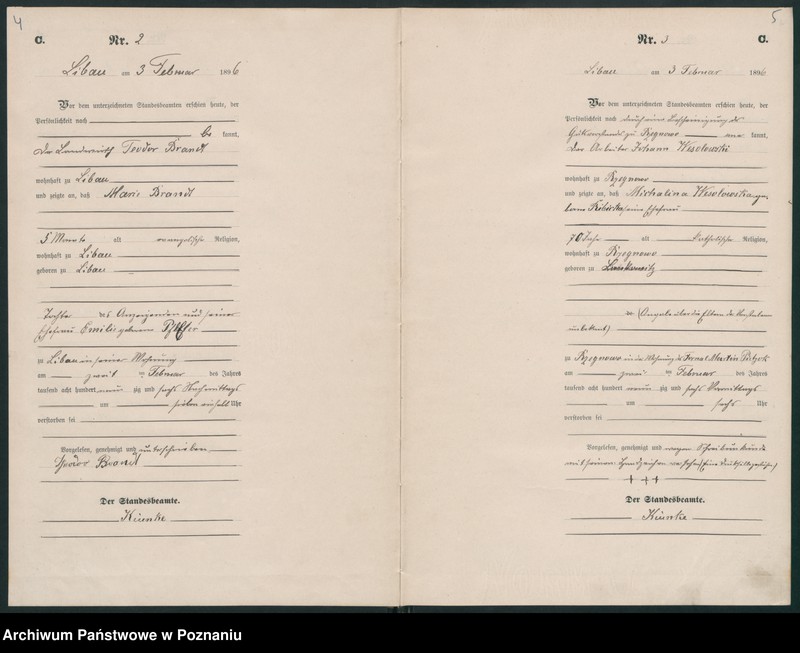 4
C.
Nr. 2
Libau am 3 Februar 1896
Vor dem unterzeichneten Standesbeamten erschien heute, der
Persönlichkeit nach
be kannt,
Der Landwirth Teodor Brandt
wohnhaft zu Libau
und zeigte an, daß Marie Brandt
5 Monate alt evangelische Religion,
wohnhaft zu Libau
geboren zu Libau
Tochter des Anzeigenden und seiner
Ehefrau Emilie geborene
zu Libau in seiner Wohnung
am zwei ten Februar des Jahres
tausend acht hundert neun zig und sechs Nachmittags
um sieben einhalb Uhr
verstorben sei
Vorgelesen, genehmigt und unterschrieben
Theodor Brandt
Der Standesbeamte.
Kiunke
5
Nr. 3
C.
Libau am 3 Februar 1896
Vor dem unterzeichneten Standesbeamten erschien heute, der
Persönlichkeit nach durch eine Bescheinigung des
Gutsvorstands zu Rzegnowo aner kannt,
Der Arbeiter Johann Wesolowski
wohnhaft zu Rzegnowo
und zeigte an, daß Michalina Wesolowska ge-
borne seine Ehefrau
70 Jahr alt katholische Religion,
wohnhaft zu Rzegnowo
geboren zu
(Angabe über die Eltern der Verstorbenen
unbekannt)
zu Rzegnowo in der Wohnung des Martin
am zwei ten Februar des Jahres
tausend acht hundert neun zig und sechs Vormittags
um sechs Uhr
verstorben sei
Vorgelesen, genehmigt und wegen Schreibunkunde
mit seinem Handzeichen versehen
+ + +
Der Standesbeamte.
Kiunke
Archiwum Państwowe w Poznaniu